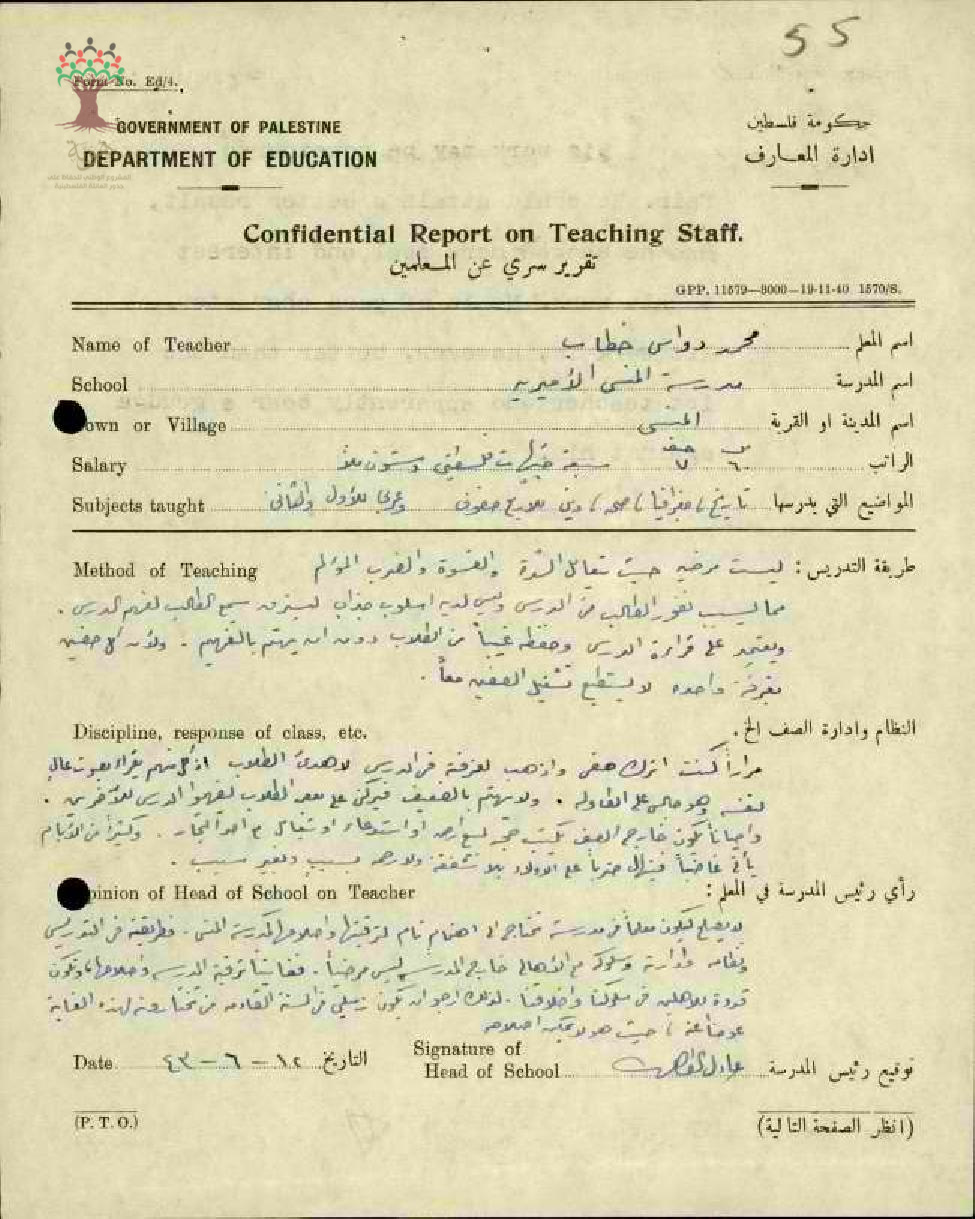 55
Form No. Ed/4.
GOVERNMENT OF PALESTINE
حكومة فلسطين
DEPARTMENT OF EDUCATION
ادارة المعارف
Confidential Report on Teaching Staff.
تقرير سري عن المعلمين
GPP. 11579—8000—19-11-40 1570/S.
Name of Teacher محمد دواس خطاب اسم المعلم
School مدرسة المنسي الأميرية اسم المدرسة
own or Village المنسي اسم المدينة او القرية
Salary ٦٠ ٧ سبعة جنيهات فلسطيني وستون ملاً الراتب
Subjects taught تاريخ، جغرافيا، صحة، دين للاربع صفوف وعربي للأول والثاني المواضيع التي يدرسها
Method of Teaching طريقة التدريس : ليست مرضيه حيث الشدة والقسوة والضرب المؤلم
مما يسبب نفور الطالب من الدرس وليس لديه اسلوب جذاب سمع الطالب لفهم الدرس .
ويعتمد على قراءة الدرس وحفظه غيباً من الطلاب دون ان يهتم بالتفهيم . ولأن كل صفين
بغرفة واحده لا يستطيع تشغيل الصفين معاً .
Discipline, response of class, etc. النظام وادارة الصف الخ.
مراراً كنت اترك صفي واذهب لغرفته في الدرس لأهدئ الطلاب اذ كل منهم يقرأ بصوت عالي
لنفسه وهو جالس على الطاولة . ولا يهتم بالضعيف فيركن على بعض الطلاب ليفهموا الدرس للآخرين .
واحياناً يكون خارج الصف او استدعاء او مع احد التجار . وكثيراً من الأيام
يأتي غاضباً ضرباً على الأولاد بلا شفقة ولا رحمه بسبب وبغير سبب .
pinion of Head of School on Teacher رأي رئيس المدرسة في المعلم :
لا يصلح ليكون معلماً في مدرسة تحتاج الى اهتمام تام لترقيتها واصلاحها كمدرسة المنسي . فطريقته في التدريس
ونظامه وادارته وسلوكه مع الأهالي خارج المدرسة ليس مرضياً . فغايتنا ترقية المدرسه واصلاحها، ونكون
قدوة للأهلين في سلوكنا واخلاقنا . لذلك ارجو ان يكون زميلي في السنة القادمه من تختارونه لهذه الغاية
عوضاً عنه ، حيث هو لا يمكن اصلاحه
Date ١٢ – ٦ – ٤٣ التاريخ
Signature of
Head of School عادل توقيع رئيس المدرسة
(P. T. O.)
(انظر الصفحة التالية)